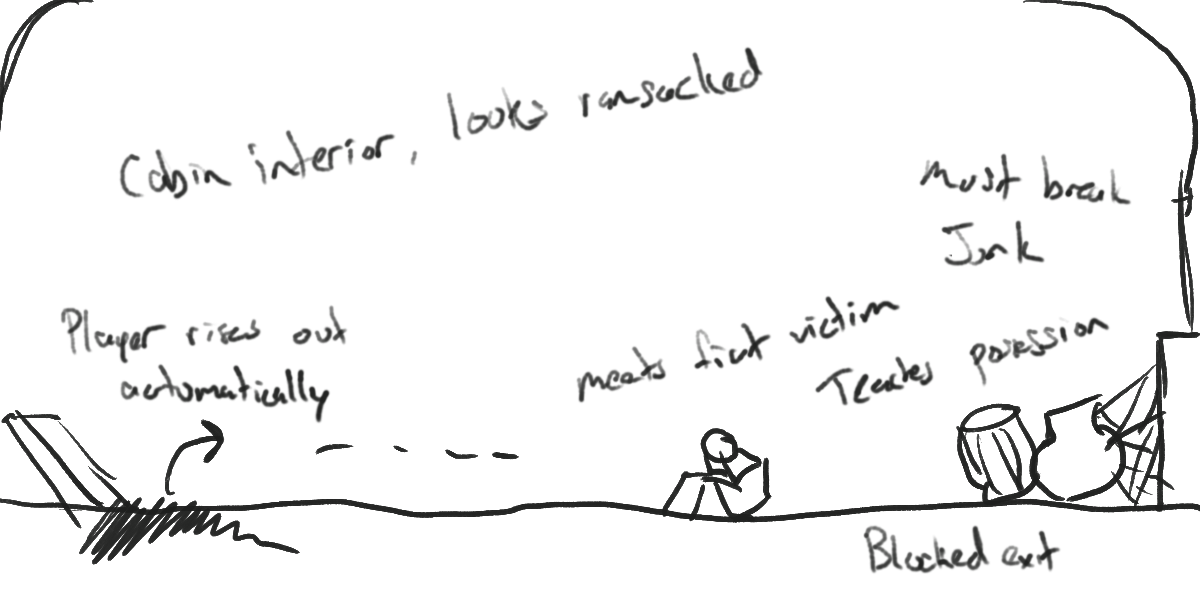 Cabin interior, looks ransacked
Must break
Junk
Player rises out
automatically
meets first victim
Teaches possession
Blocked exit